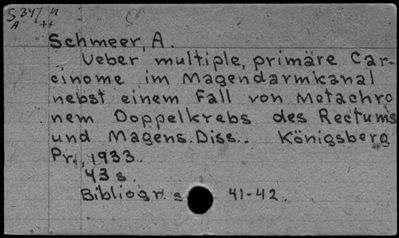 S 347 n
A ++
Schmeer, A.
Ueber multiple, primäre Car-
cinome im Magendarmkanal
nebst einem Fall von Metachro
nem Doppelkrebs des Rectums
und Magens. Diss.. Königsberg
Pr., 1933.
43 s.
Bibliogr. s 41-42.